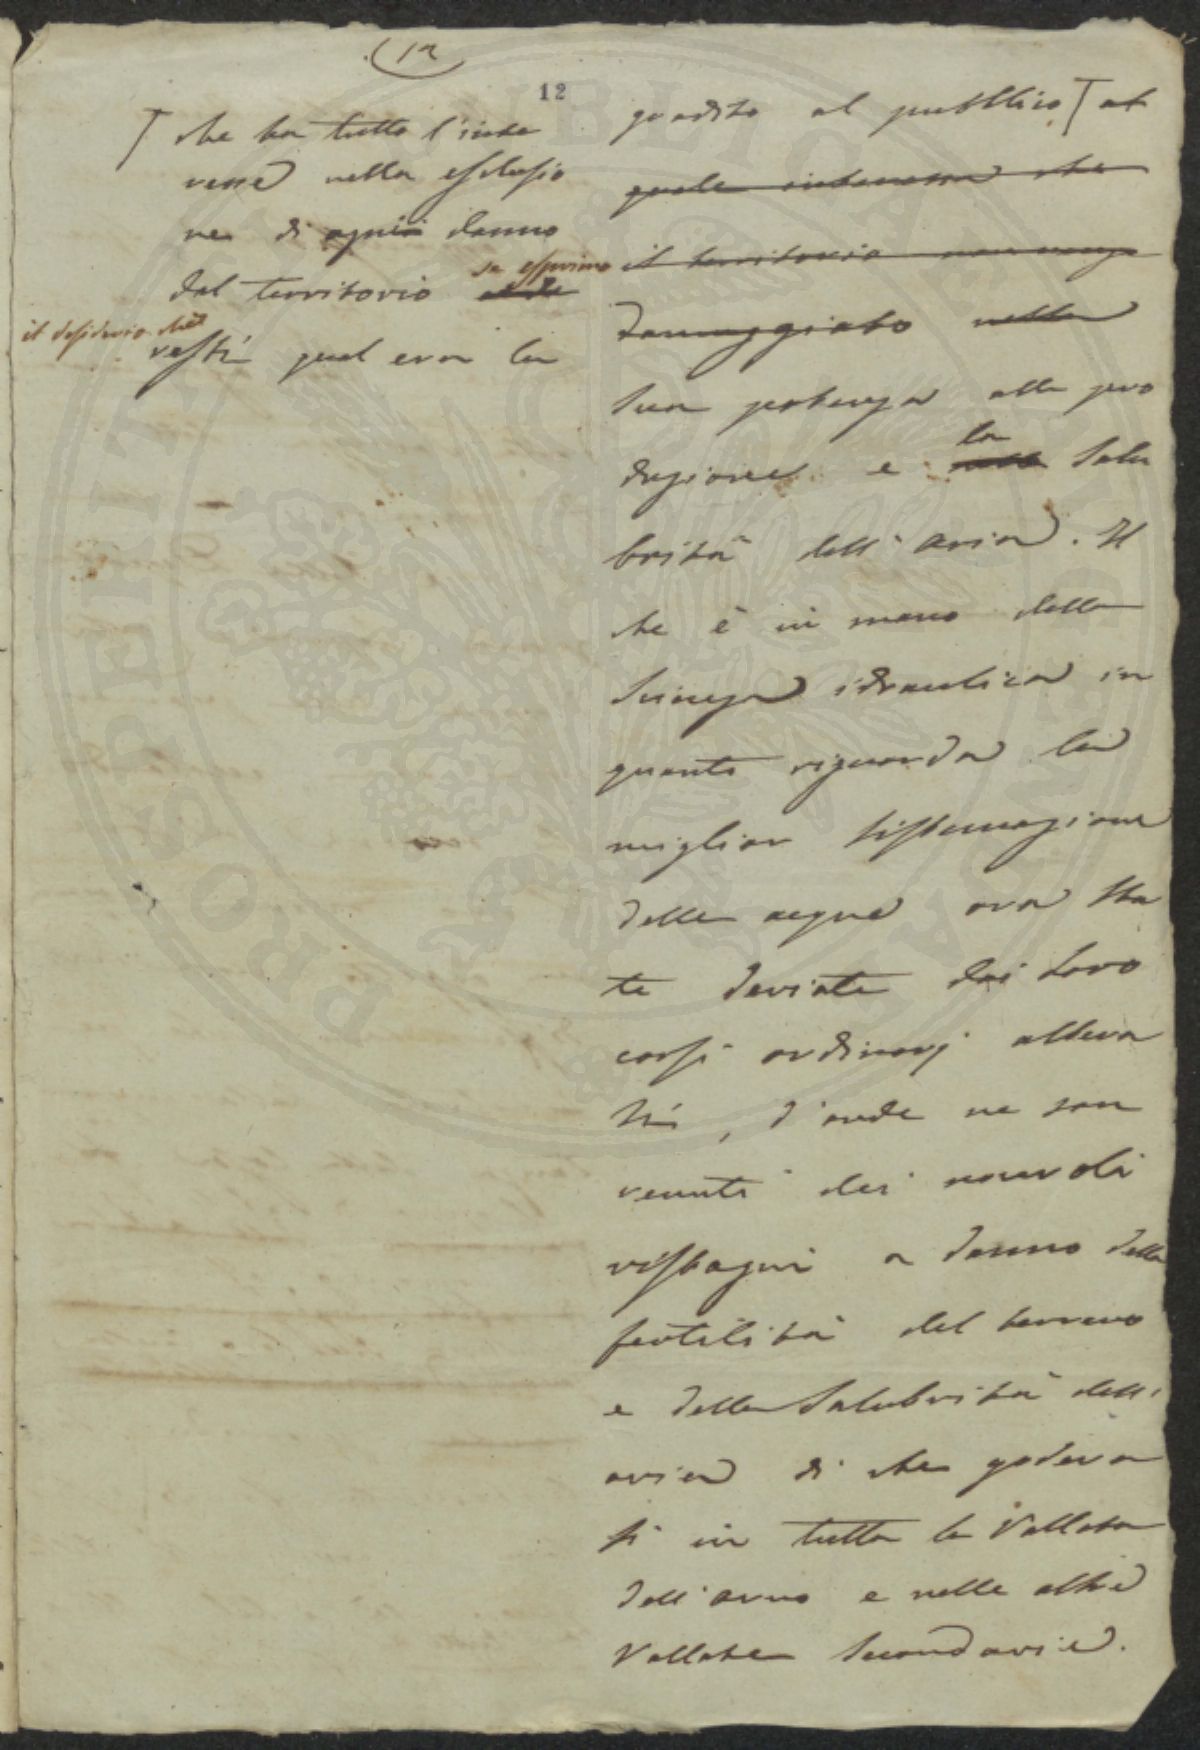 12
12
⎡ che ha tutto l'inte
resse nella esclusio
ne di ogni danno
dal territorio
se esprimo
il desiderio che
resti qual era la
gradito al pubblico ⎡ al
quale interessa che
il territorio non venga
danneggiato nella
sua potenza alla pro
duzione e la salu
brità dell'aria. Il
che è in mano della
Scienza idraulica in
quanto riguarda la
miglior sistemazione
delle acque ora sta
te deviate dai loro
corsi ordinarj altera
ti, d'onde ne son
venuti dei nocevoli
ristagni a danno della
fertilità del terreno
e della Salubrità dell'
aria di che godeva
si in tutta la Vallata
dell'arno e nelle altre
Vallate Secondarie.
PROSPERITATI PUBLICAE AUGENDAE